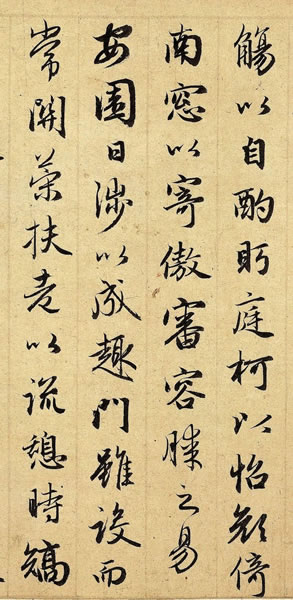 觴以自酌眄庭柯以怡顏倚
南窓以寄傲審容膝之易
安園日涉以成趣門雖設而
常關策扶老以流憩時矯